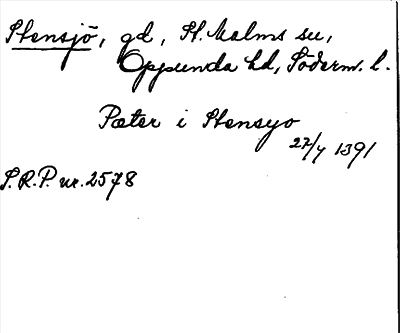 Stensjö, gd, St. Malms sn,
Oppunda hd, Söderm. l.
Pæter i Stensyo
27/7 1391
S.R.P. nr. 2578